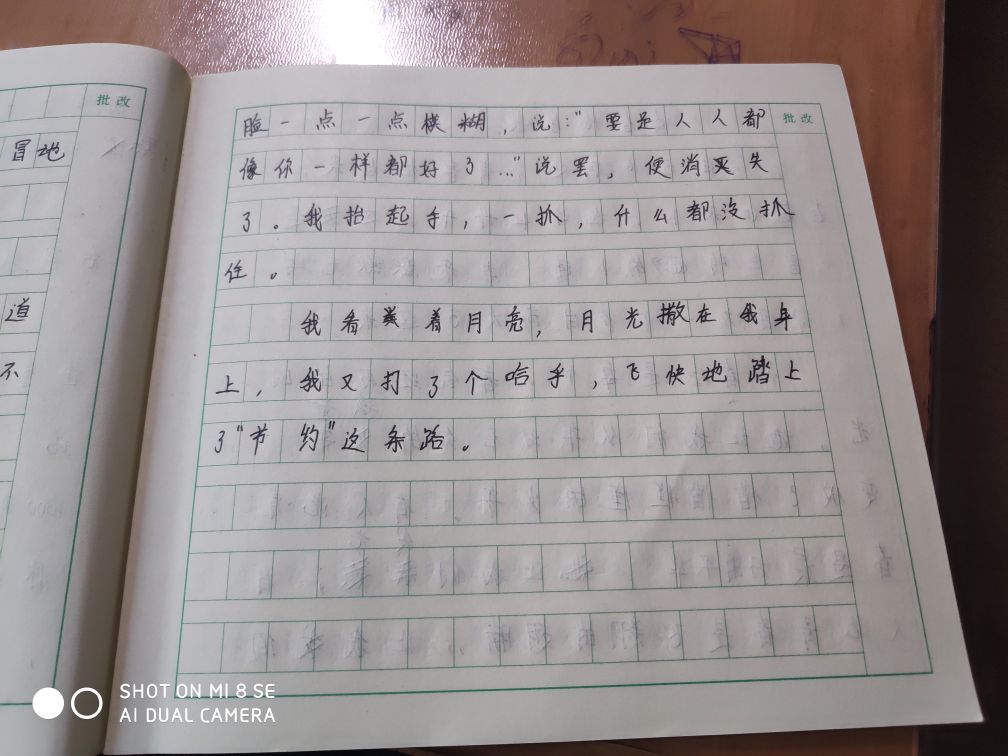 批改
冒地
道
不
脸一点一点模糊，说："要是人人都
批改
像你一样都好了…"说罢，便消灭失
了。我抬起手，一抓，什么都没抓
住。
我看着月亮，月光撒在我身
上，我又打了个哈乎，飞快地踏上
了"节约"这条路。
SHOT ON MI 8 SE
AI DUAL CAMERA